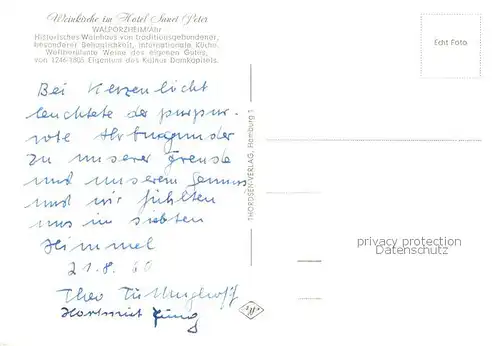 Weinkirche im Hotel Sanct Peter
WALPORZHEIM/Ahr
Historisches Weinhaus von traditionsgebundener,
besonderer Behaglichkeit, internationale Küche.
Weltberühmte Weine des eigenen Gutes,
von 1246-1805 Eigentum des Kölner Domkapitels.
Bei Kerzenlicht
leuchtete der purpur-
rote Ahrburgunder
zu unserer Freude
und unserem Genuss
und wir fühlten
uns im siebten
Himmel
21.8.60
Theo
Hartmut Jung
THORDSEN-VERLAG, Hamburg 1
Edit Foto
privacy protection
Datenschutz